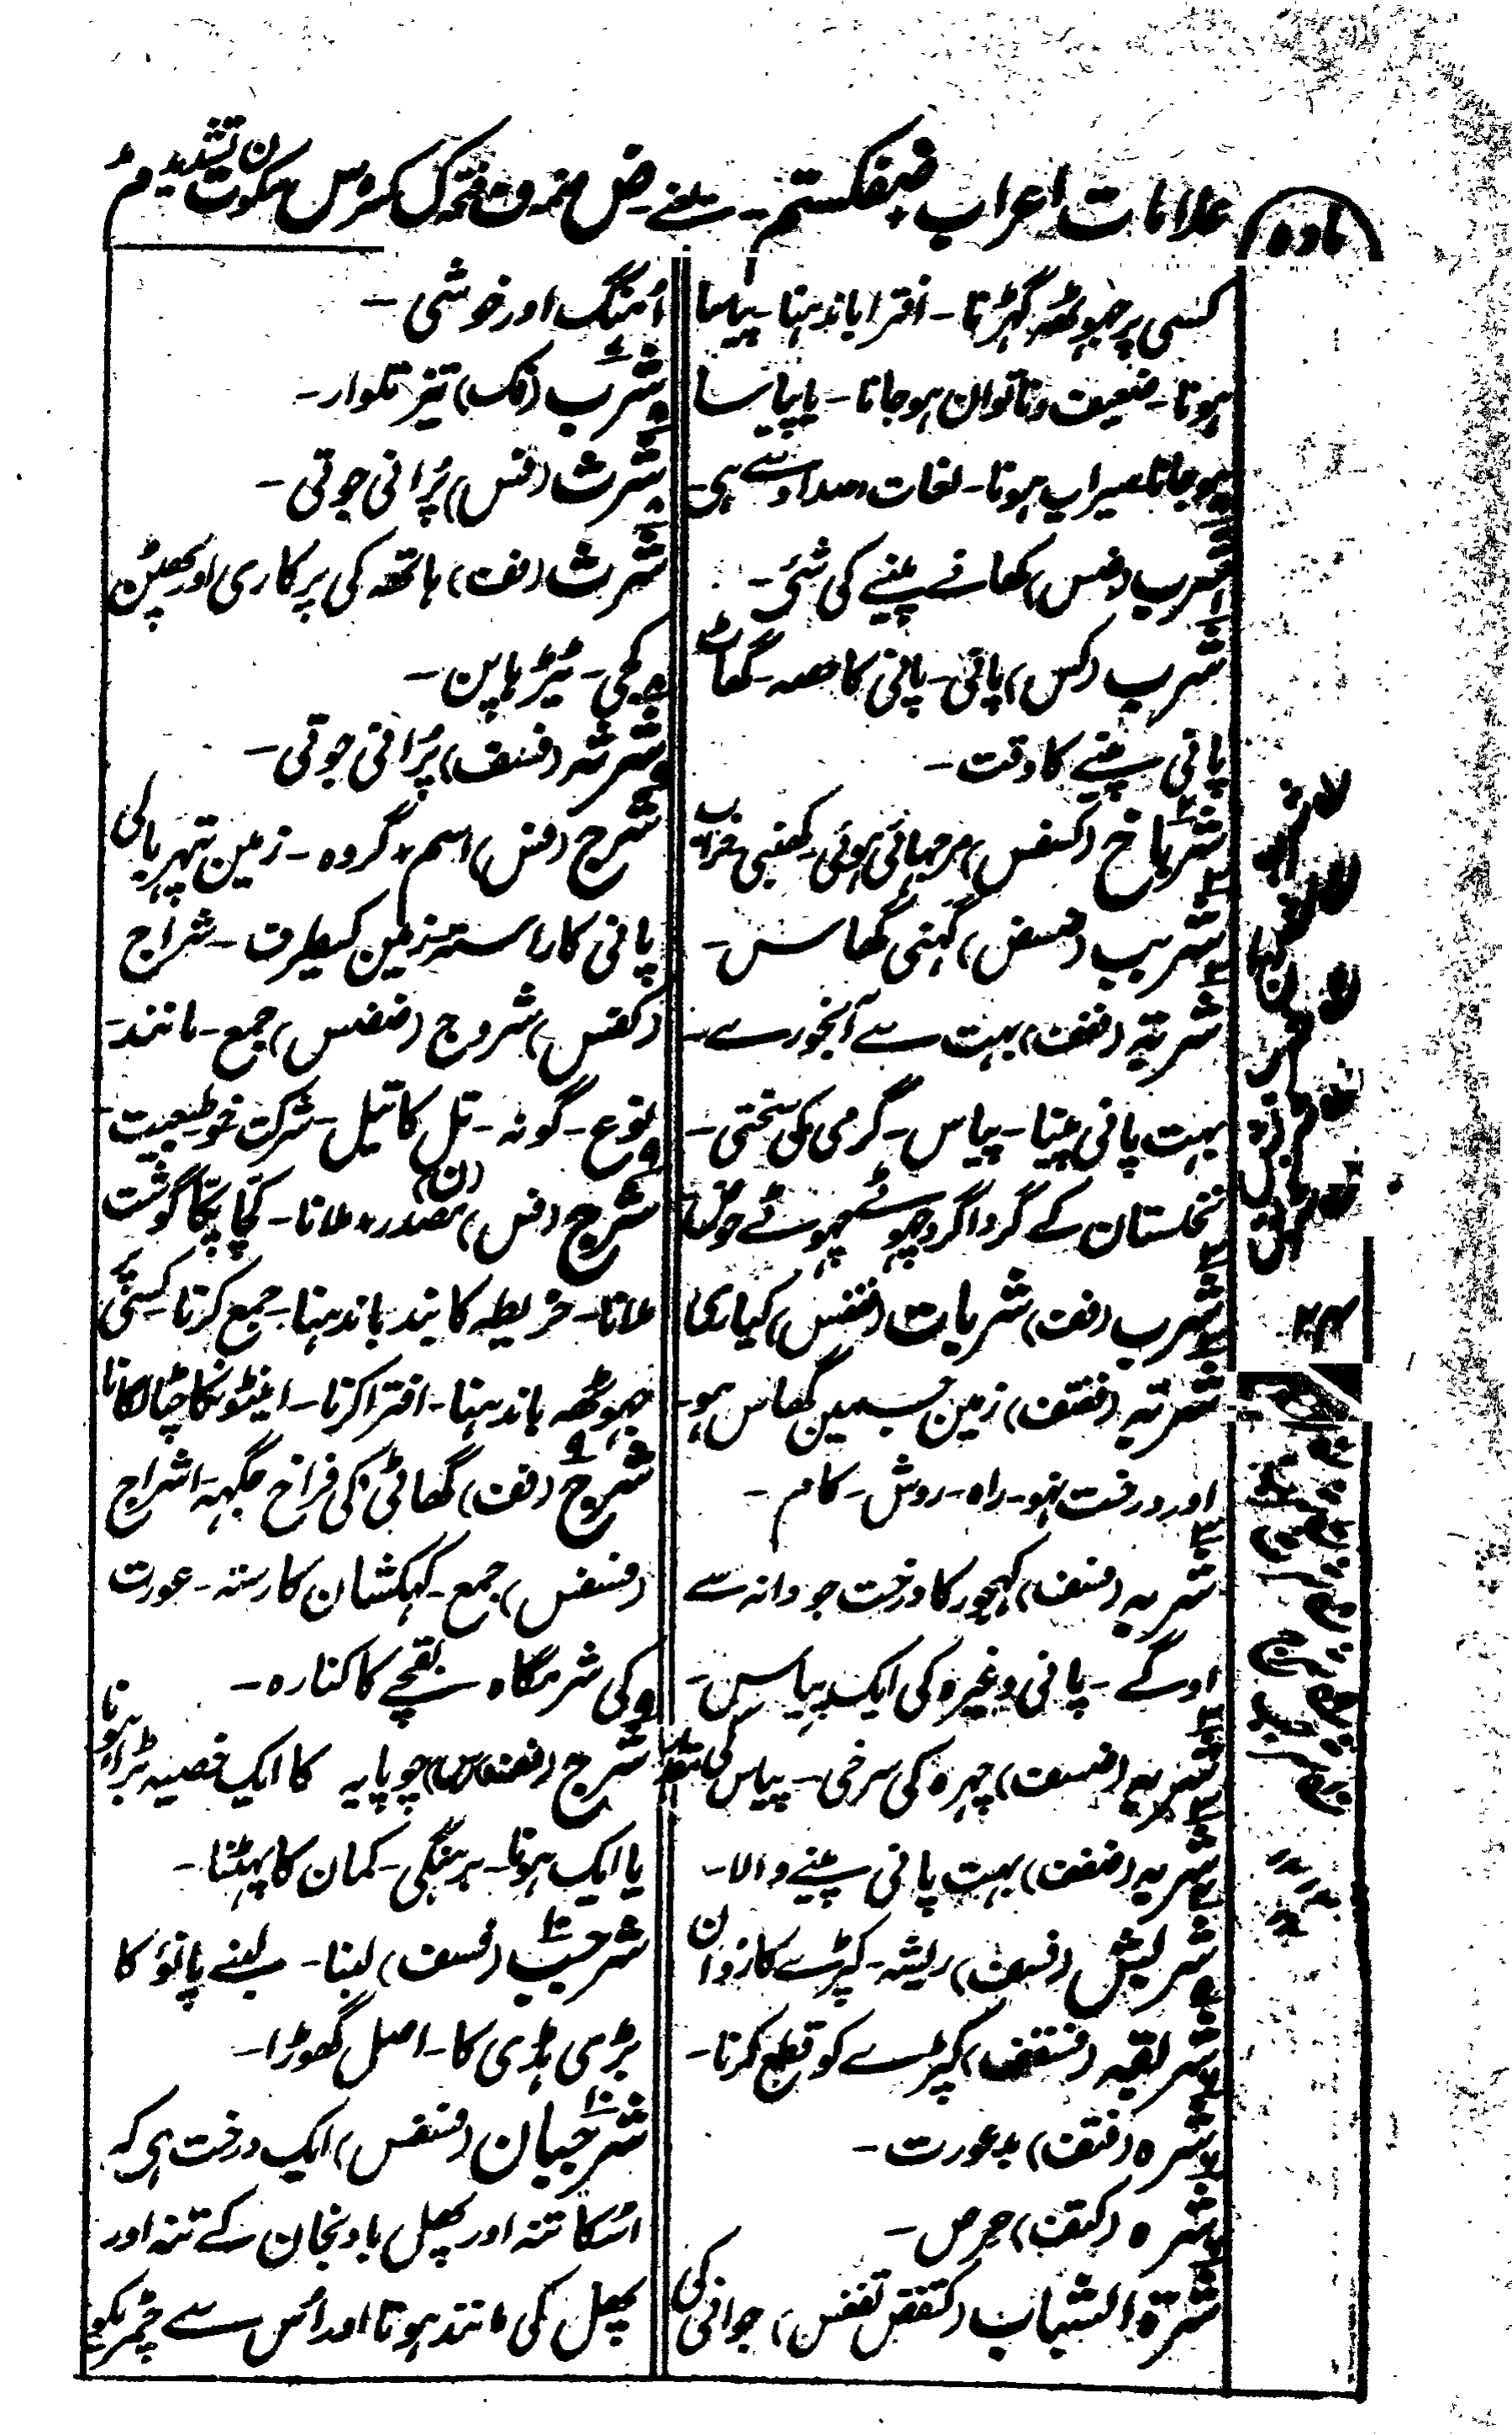 مادہ
علامات اعراب ضفکستم۔ یعنے ض ضمہ ف فتحہ ک کسرہ س سکون ت تشدید م
کسی پر جہوٹھہ گہڑنا۔ افترا باندہنا۔ پیاسا
ہونا۔ ضعیف و ناتوان ہو جانا۔ یا پیاسا
ہو جانا سیراب ہونا۔ لغات اضداد سے ہی۔
شرب (فس) کھانے پینے کی شئی۔
شرب (کس) پانی۔ پانی کا حصہ۔ گھاٹ
پانی پینے کا وقت۔
شرباخ (کسفس) مرجہائی ہوئی۔ کھنبی خراب
شربب (فسفض) گہنی گھاس۔
شربۃ (ففف) بہت سے آبخورے۔
بہت پانی پینا۔ پیاس۔ گرمی کی سختی۔
نخلستان کے گرداگرد چھوٹے چھوٹے حوض
شرب (فف) شربات (ففس) کیاری
شربۃ (ففتف) زمین جسمین گھاس ہو۔
اور درخت نہو۔ راہ۔ روش۔ کام۔
شربہ (فسف) کہجور کا درخت جو دانہ سے
اوگے۔ پانی وغیرہ کی ایک پیاس۔
شربہ (ضسف) چہرہ کی سرخی۔ پیاس کی
شربہ (ضفف) بہت پانی پینے والا۔
شربش (فسف) ریشہ۔ کپڑے کا رُوان
شربقہ (فسففف) کپڑے کو قطع کرنا۔
شرہ (فتف) بدعورت۔
شرہ (کتف) حرص۔
شرۃ الشباب (کتفض تففس) جوانی کی
اُمنگ اور خوشی۔
شرب (فک) تیز تلوار۔
شرث (فس) پُرانی جوتی۔
شرث (فف) ہاتھہ کی پرکاری اور پھٹن
کجی۔ ٹیڑہاپن۔
شرثہ (فسف) پُرانی جوتی۔
شرج (فس) اسم، گروہ۔ زمین تپھریا کی
پانی کا راستہ زمین کیطرف۔ شراج
(کفس) شروج (ضضس) جمع۔ مانند۔
نوع۔ گونہ۔ تل کا تیل۔ شرکت خو طبیعت۔
شرج (فس) (ن) مصدر، ملانا۔ کچا پکا گوشت
ملانا۔ خریطہ کا بند باندہنا۔ جمع کرنا۔ کسی پر
جہوٹھہ باندہنا۔ افترا کرنا۔ اینٹونکا چٹا لگانا
شرج (فف) گھاٹی کی فراخ جگہہ۔ اشراج
(فسفس) جمع۔ کہکشان کا رستہ۔ عورت
کی شرمگاہ بقچے کا کنارہ۔
شرج چوپایہ کا ایک خصیہ بڑا ہونا
یا ایک ہونا۔ برہنگی۔ کمان کا پہٹنا۔
شرجب (فسف) لنبا۔ لنبے پانؤ کا
بڑی ہڈی کا۔ اصل گھوڑا۔
شرجبان (فسفس) ایک درخت ہی کہ
اسُکا تنہ اور پھل بادنجان کے تنہ اور
پھل کی مانند ہوتا اور اُس سے چمڑیکو